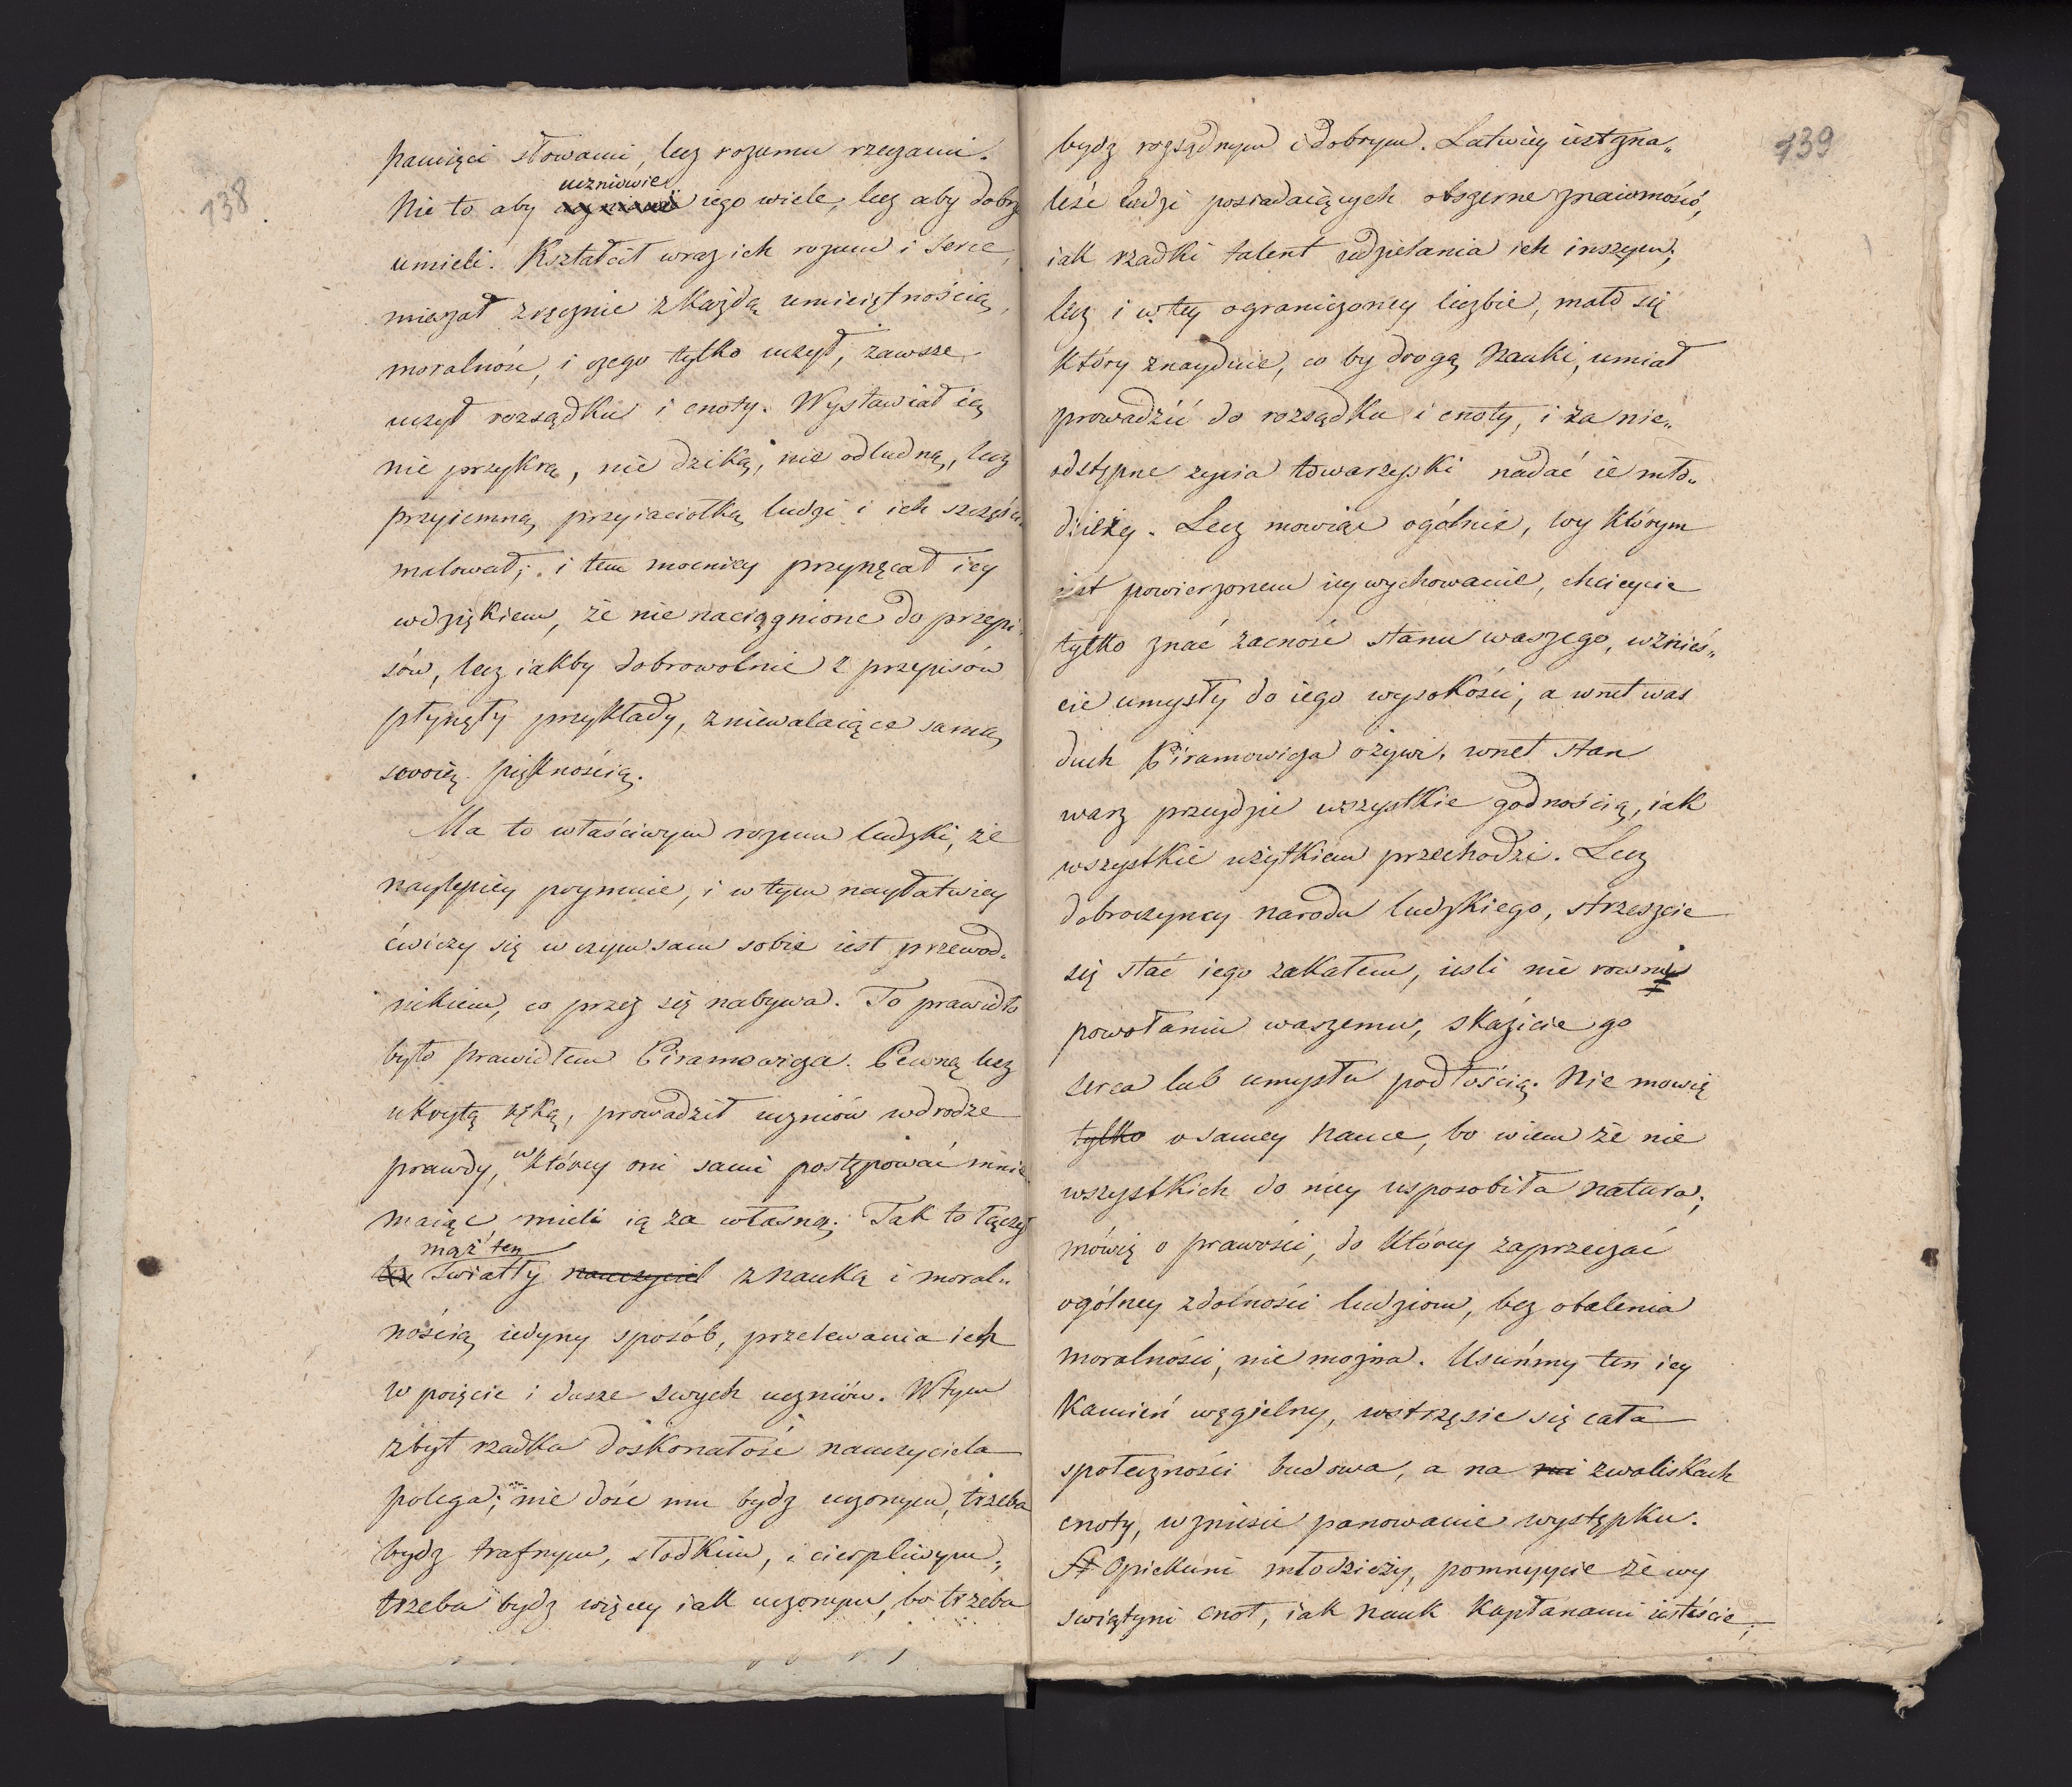 138
pamięci słowami, lecz rozumu rzeczami.
uczniowie
Nie to aby iego wiele, lecz aby dobrze
umieli. Kształcił wraz ich rozum i serce,
mięszał zręcznie z każdą umieiętnością,
moralność, i czego tylko uczył, zawsze
uczył rozsądku i cnoty. Wystawiał ią
nie przykrą, nie dziką, nie odludną, lecz
przyiemną, przyiaciołką ludzi i ich szczęścia
malował; i tem mocniey przynęcał iey
wdziękiem, że nie naciągnione do przepi„
sów, lecz iakby dobrowolnie z przepisów
płynęły przykłady, zniewalaiące samą
swoią pięknością.
Ma to właściwym rozum ludzki, że
naylepiey poymuie, i w tym nayłatwiey
ćwiczy się w czym sam sobie iest przewod„
nikiem, co przez się nabywa. To prawidło
było prawidłem Piramowicza. Pewną lecz
ukrytą ręką, prowadził uczniów w drodze
prawdy, w którey oni sami postępować mnie
maiąc mieli ią za własną. Tak to łączył
mąż ten
ten światły nauczyciel z nauką i moral„
nością iedyny sposób, przelewania ich
w poięcie i dusze swych uczniów. W tym
zbyt rzadka doskonałość nauczyciela
polega; nie dość mu bydz uczonym, trzeba
bydz trafnym, słodkim, i cierpliwym;
trzeba bydz więcey iak uczonym, bo trzeba
139
bydz rozsądnym i dobrym. Łatwiey iest zna„
leźć ludzi posiadaiących obszerne znaiomości,
iak rzadki talent udzielania ich inszym;
lecz i w tey ograniczoney liczbie, mało się
który znayduie, co by drogą nauki, umiał
prowadzić do rozsądku i cnoty, i za nie„
odstępne życia towarzyszki nadać ie mło„
dzieży. Lecz mowiąc ogólnie, wy którym
iest powierzonem iey wychowanie, chcieycie
tylko znać zacność stanu waszego, wznieś„
cie umysły do iego wysokości, a wnet was
duch Piramowicza ożywi, wnet stan
wasz przeydzie wszystkie godnością, iak
wszystkie użytkiem przechodzi. Lecz
dobroczyńcy narodu ludzkiego, strzeszcie
się stać iego zakałem, iesli nie rowni
powołaniu waszemu, skazicie go
serca lub umysłu podłością. Nie mowię
tylko o samey nauce, bo wiem że nie
wszystkich do niey usposobiła natura;
mówię o prawości, do którey zaprzeczać
ogólney zdolności ludziom, bez obalenia
moralności, nie można. Usuńmy ten iey
kamień węgielny, wstrzęsie się cała
społeczności budowa, a na zwaliskach
cnoty, wzniesie panowanie występku.
Opiekuni młodzieży, pomnyycie że wy
swiątyni cnot, iak nauk kapłanami iesteście,